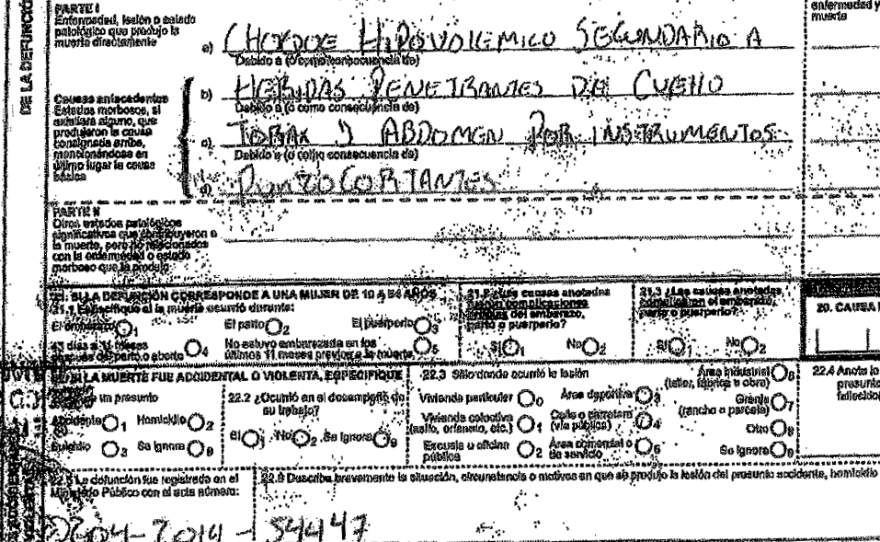 DE LA DEFUNCIÓ
PARTE I
Enfermedad, lesión o estado
patológico que produjo la
muerte directamente
enfermedad y
muerte
a) CHOQUE HIPOVOLEMICO SECUNDARIO A
Debido a (o como consecuencia de)
b) HERIDAS PENETRANTES DE CUELLO
Debido a (o como consecuencia de)
Causas antecedentes
Estados morbosos, si
existiera alguno, que
produjeron la causa
consignada arriba,
mencionándose en
último lugar la causa
básica
c) TORAX Y ABDOMEN POR INSTRUMENTOS
Debido a (o como consecuencia de)
d) PUNZOCORTANTES
PARTE II
Otros estados patológicos
significativos que contribuyeron a
la muerte, pero no relacionados
con la enfermedad o estado
morboso que la produjo
21. SI LA DEFUNCIÓN CORRESPONDE A UNA MUJER DE 10 A 54 AÑOS
21.1 Especifique si la muerte ocurrió durante:
El embarazo 1 El parto 2 El puerperio 3
43 días a 11 meses
después del parto o aborto 4
No estuvo embarazada en los
últimos 11 meses previos a la muerte 5
21.2 ¿Las causas anotadas
fueron complicaciones
propias del embarazo,
parto o puerperio?
Sí 1 No 2
21.3 ¿Las causas anotadas
complicaron el embarazo,
parto o puerperio?
Sí 1 No 2
20. CAUSA
22. SI LA MUERTE FUE ACCIDENTAL O VIOLENTA, ESPECIFIQUE
un presunto
Accidente 1 Homicidio 2
Suicidio 3 Se ignora 9
22.2 ¿Ocurrió en el desempeño de
su trabajo?
Sí 1 No 2 Se ignora 9
22.3 Sitio donde ocurrió la lesión
Vivienda particular 0
Vivienda colectiva
(asilo, orfanato, etc.) 1
Escuela u oficina
pública 2
Área deportiva 3
Calle o carretera
(vía pública) 4
Área comercial o
de servicio 5
Área industrial
(taller, fábrica u obra) 6
Granja
(rancho o parcela) 7
Otro 8
Se ignora 9
22.4 Anote la
presunto
fallecido
22.5 La defunción fue registrada en el
Ministerio Público con el acta número:
22.6 Describa brevemente la situación, circunstancia o motivos en que se produjo la lesión del presunto accidente, homicidio
04-2014-54447